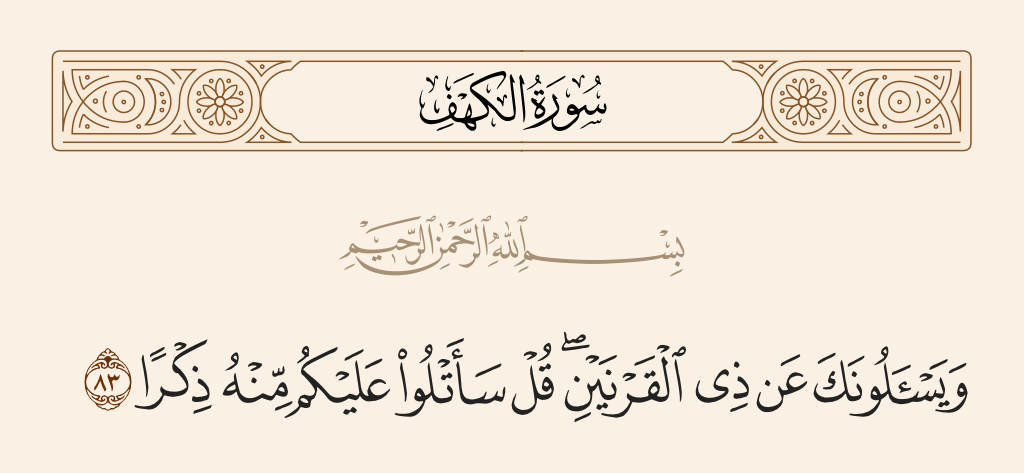 سُورَةُ الكَهۡفِ
بِسۡمِ ٱللَّهِ ٱلرَّحۡمَٰنِ ٱلرَّحِيمِ
وَيَسۡـَٔلُونَكَ عَن ذِى ٱلۡقَرۡنَيۡنِۖ قُلۡ سَأَتۡلُواْ عَلَيۡكُم مِّنۡهُ ذِكۡرًا ٨٣